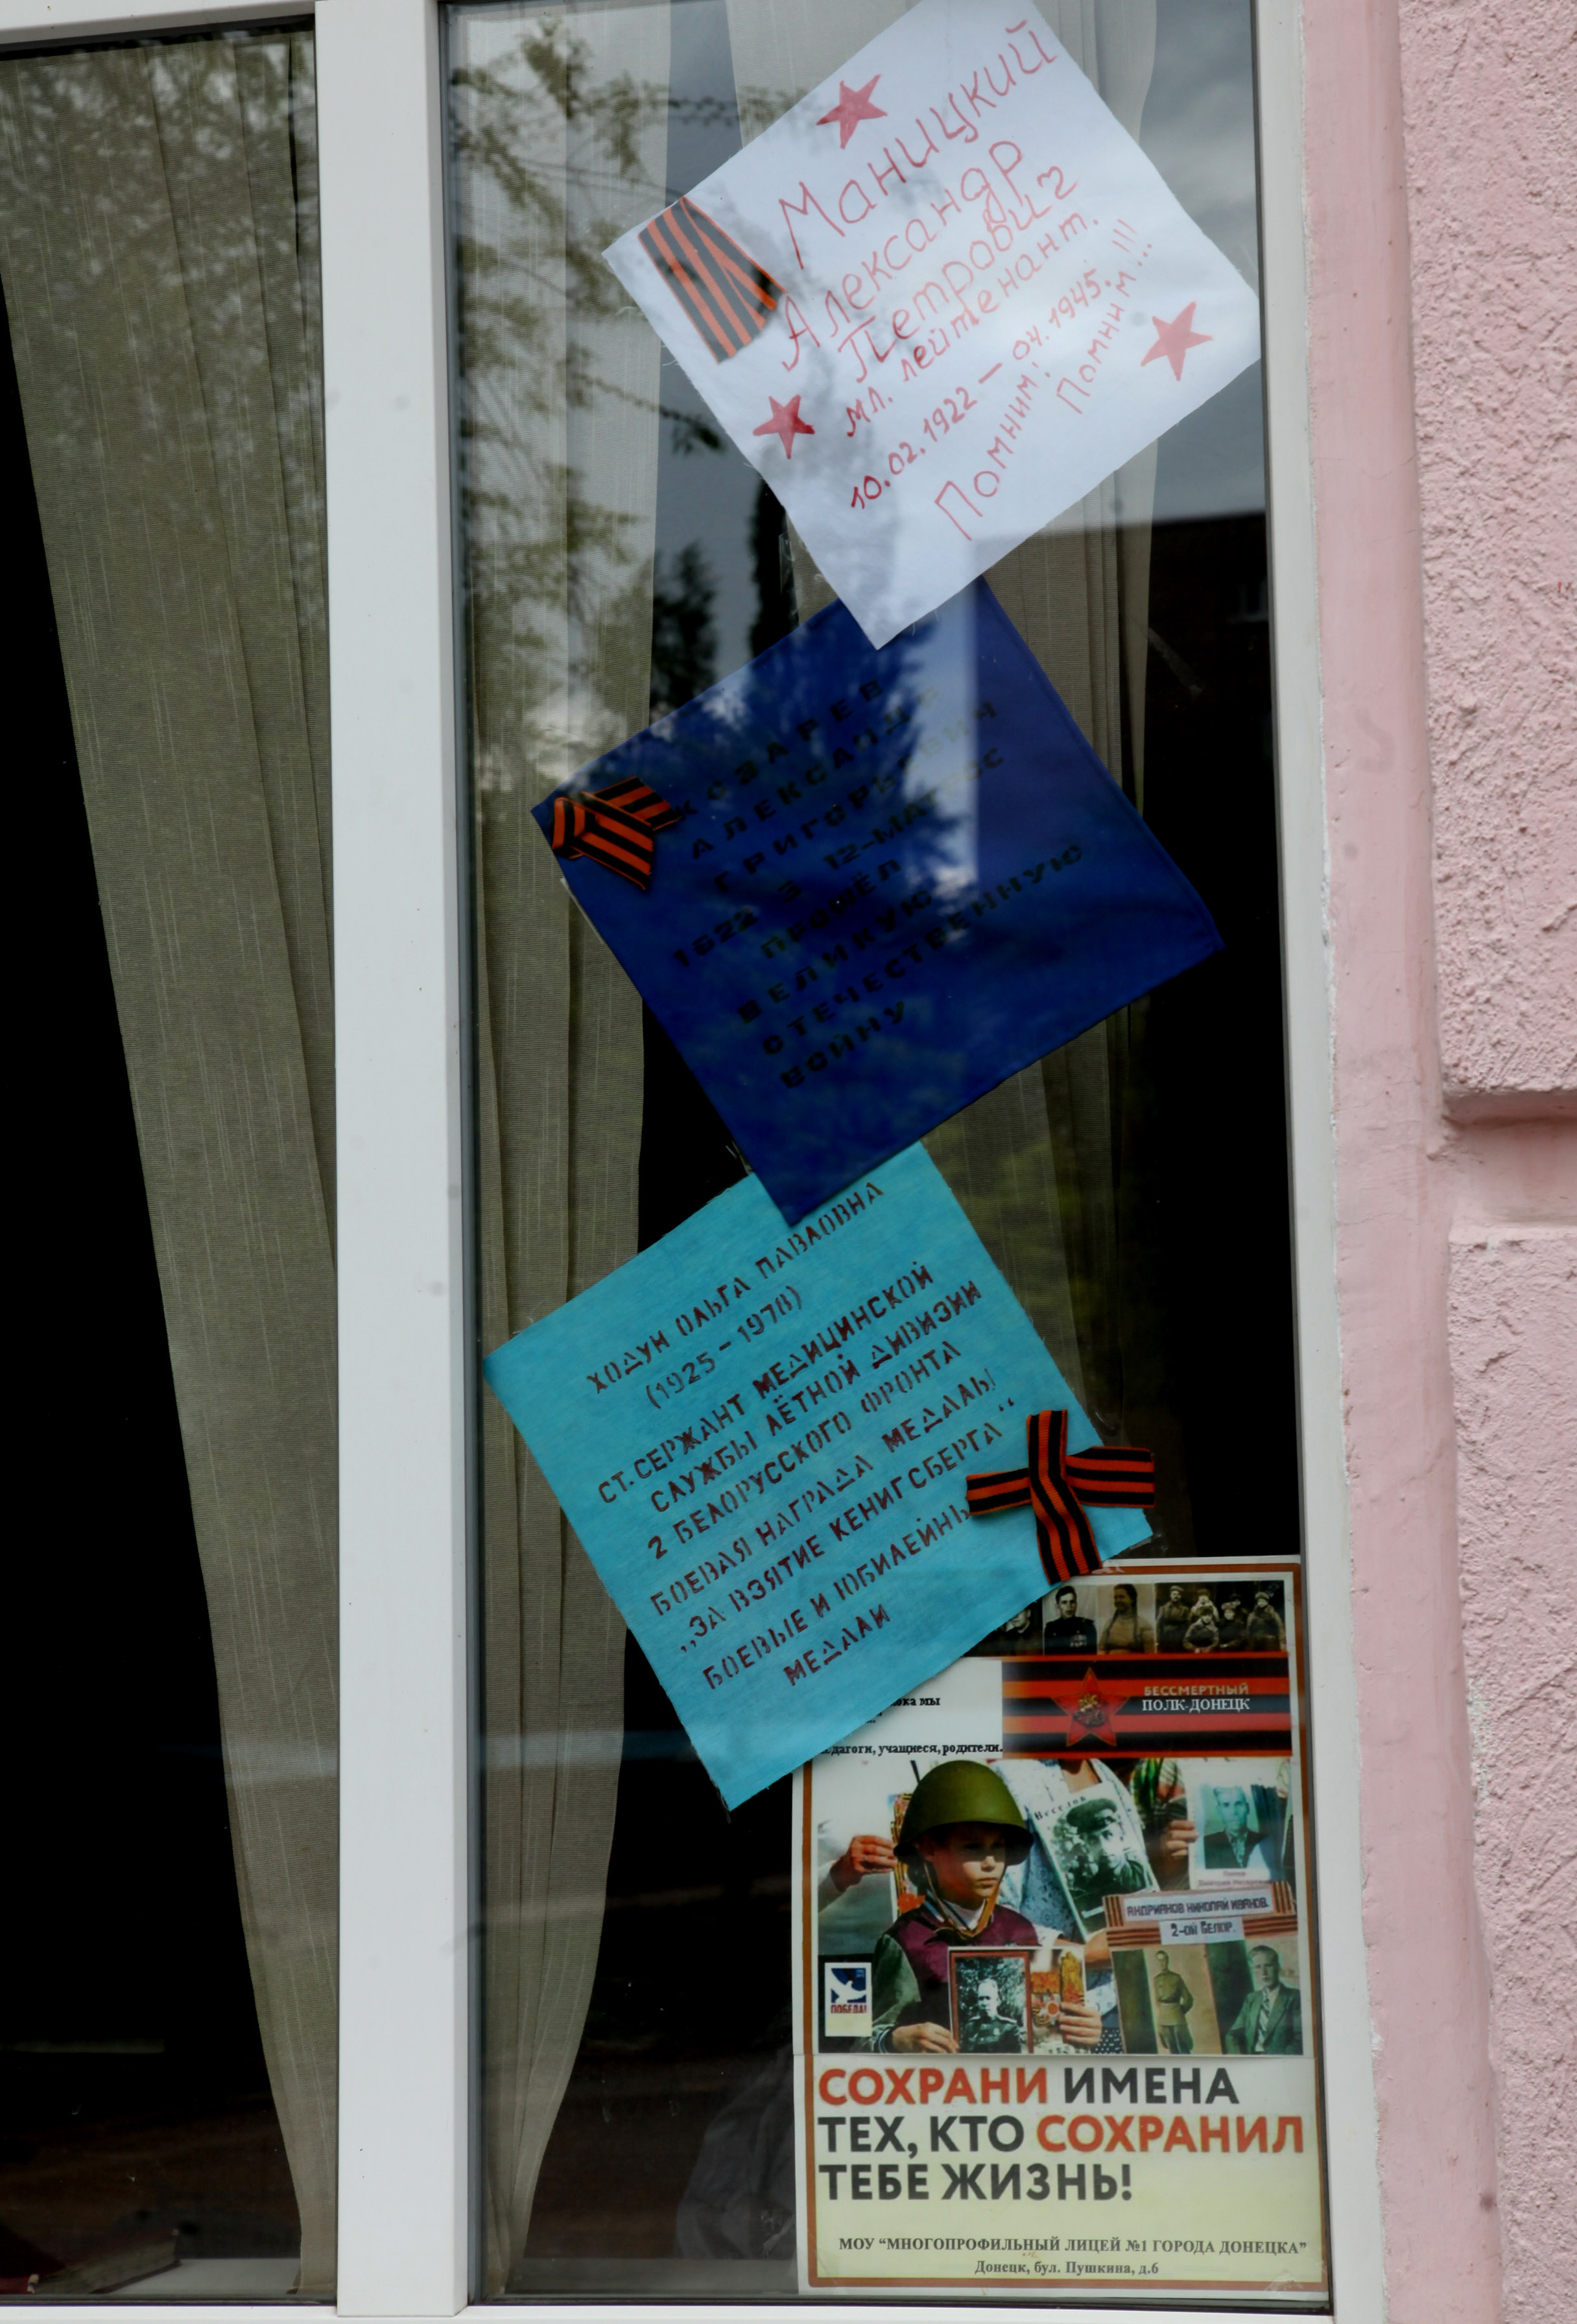 Маницкий
Александр
Петрович
мл. лейтенант.
10.02.1922 — 04.1945.
Помним! Помним...!!!
КОЗАРЕВ
АЛЕКСАНДР
ГРИГОРЬЕВИЧ
ПРОШЁЛ
ВЕЛИКУЮ
ОТЕЧЕСТВЕННУЮ
ВОЙНУ
ХОДУН ОЛЬГА ПАВЛОВНА
(1925 – 1978)
СТ. СЕРЖАНТ МЕДИЦИНСКОЙ
СЛУЖБЫ ЛЁТНОЙ ДИВИЗИИ
2 БЕЛОРУССКОГО ФРОНТА
БОЕВАЯ НАГРАДА МЕДАЛЬ
„ЗА ВЗЯТИЕ КЕНИГСБЕРГА“
БОЕВЫЕ И ЮБИЛЕЙНЫ
МЕДАЛИ
БЕССМЕРТНЫЙ
ПОЛК-ДОНЕЦК
мы
учащиеся, родители.
Веселов
АНДРИАНОВ НИКОЛАЙ ИВАНОВ.
2-ОЙ БЕЛОР.
ПОБЕДА!
СОХРАНИ ИМЕНА
ТЕХ, КТО СОХРАНИЛ
ТЕБЕ ЖИЗНЬ!
МОУ “МНОГОПРОФИЛЬНЫЙ ЛИЦЕЙ №1 ГОРОДА ДОНЕЦКА”
Донецк, бул. Пушкина, д.6